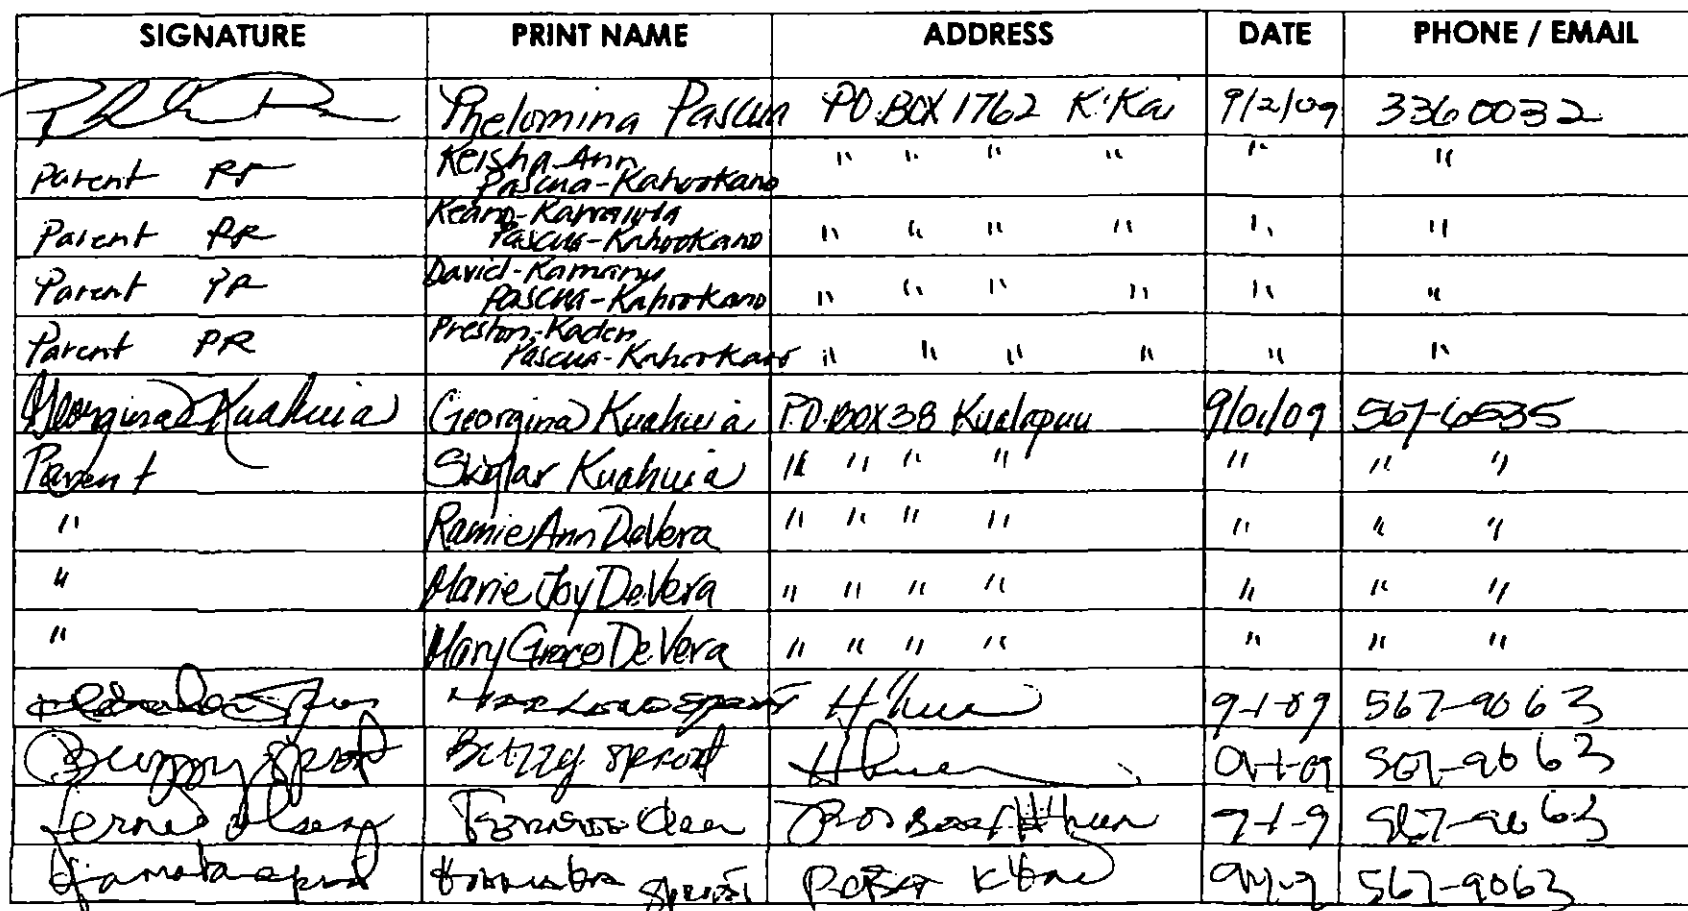 SIGNATURE PRINT NAME ADDRESS DATE PHONE / EMAIL
Phelomina Pascua PO.BOX 1762 K'Kai 9/2/09 3360032
Parent PR Keisha-Ann " " " " " "
Pascua-Kahookano
Parent PR " " " " " "
Pascua-Kahookano
Parent PR " " " " " "
Pascua-Kahookano
Parent PR Preston-Kaden " " " " " "
Pascua-Kahookano
Georgina Kuahuia Georgina Kuahuia P.O.BOX 38 Kualapuu 9/01/09 567-6535
Parent Skylar Kuahuia " " " " " " "
" Ramie Ann DeVera " " " " " " "
" Marie Joy DeVera " " " " " " "
" Mary Grace DeVera " " " " " " "
9-1-09 567-9063
Buzzy Sproat Buzzy Sproat 567-9063
9-1-9 567-9063
567-9063